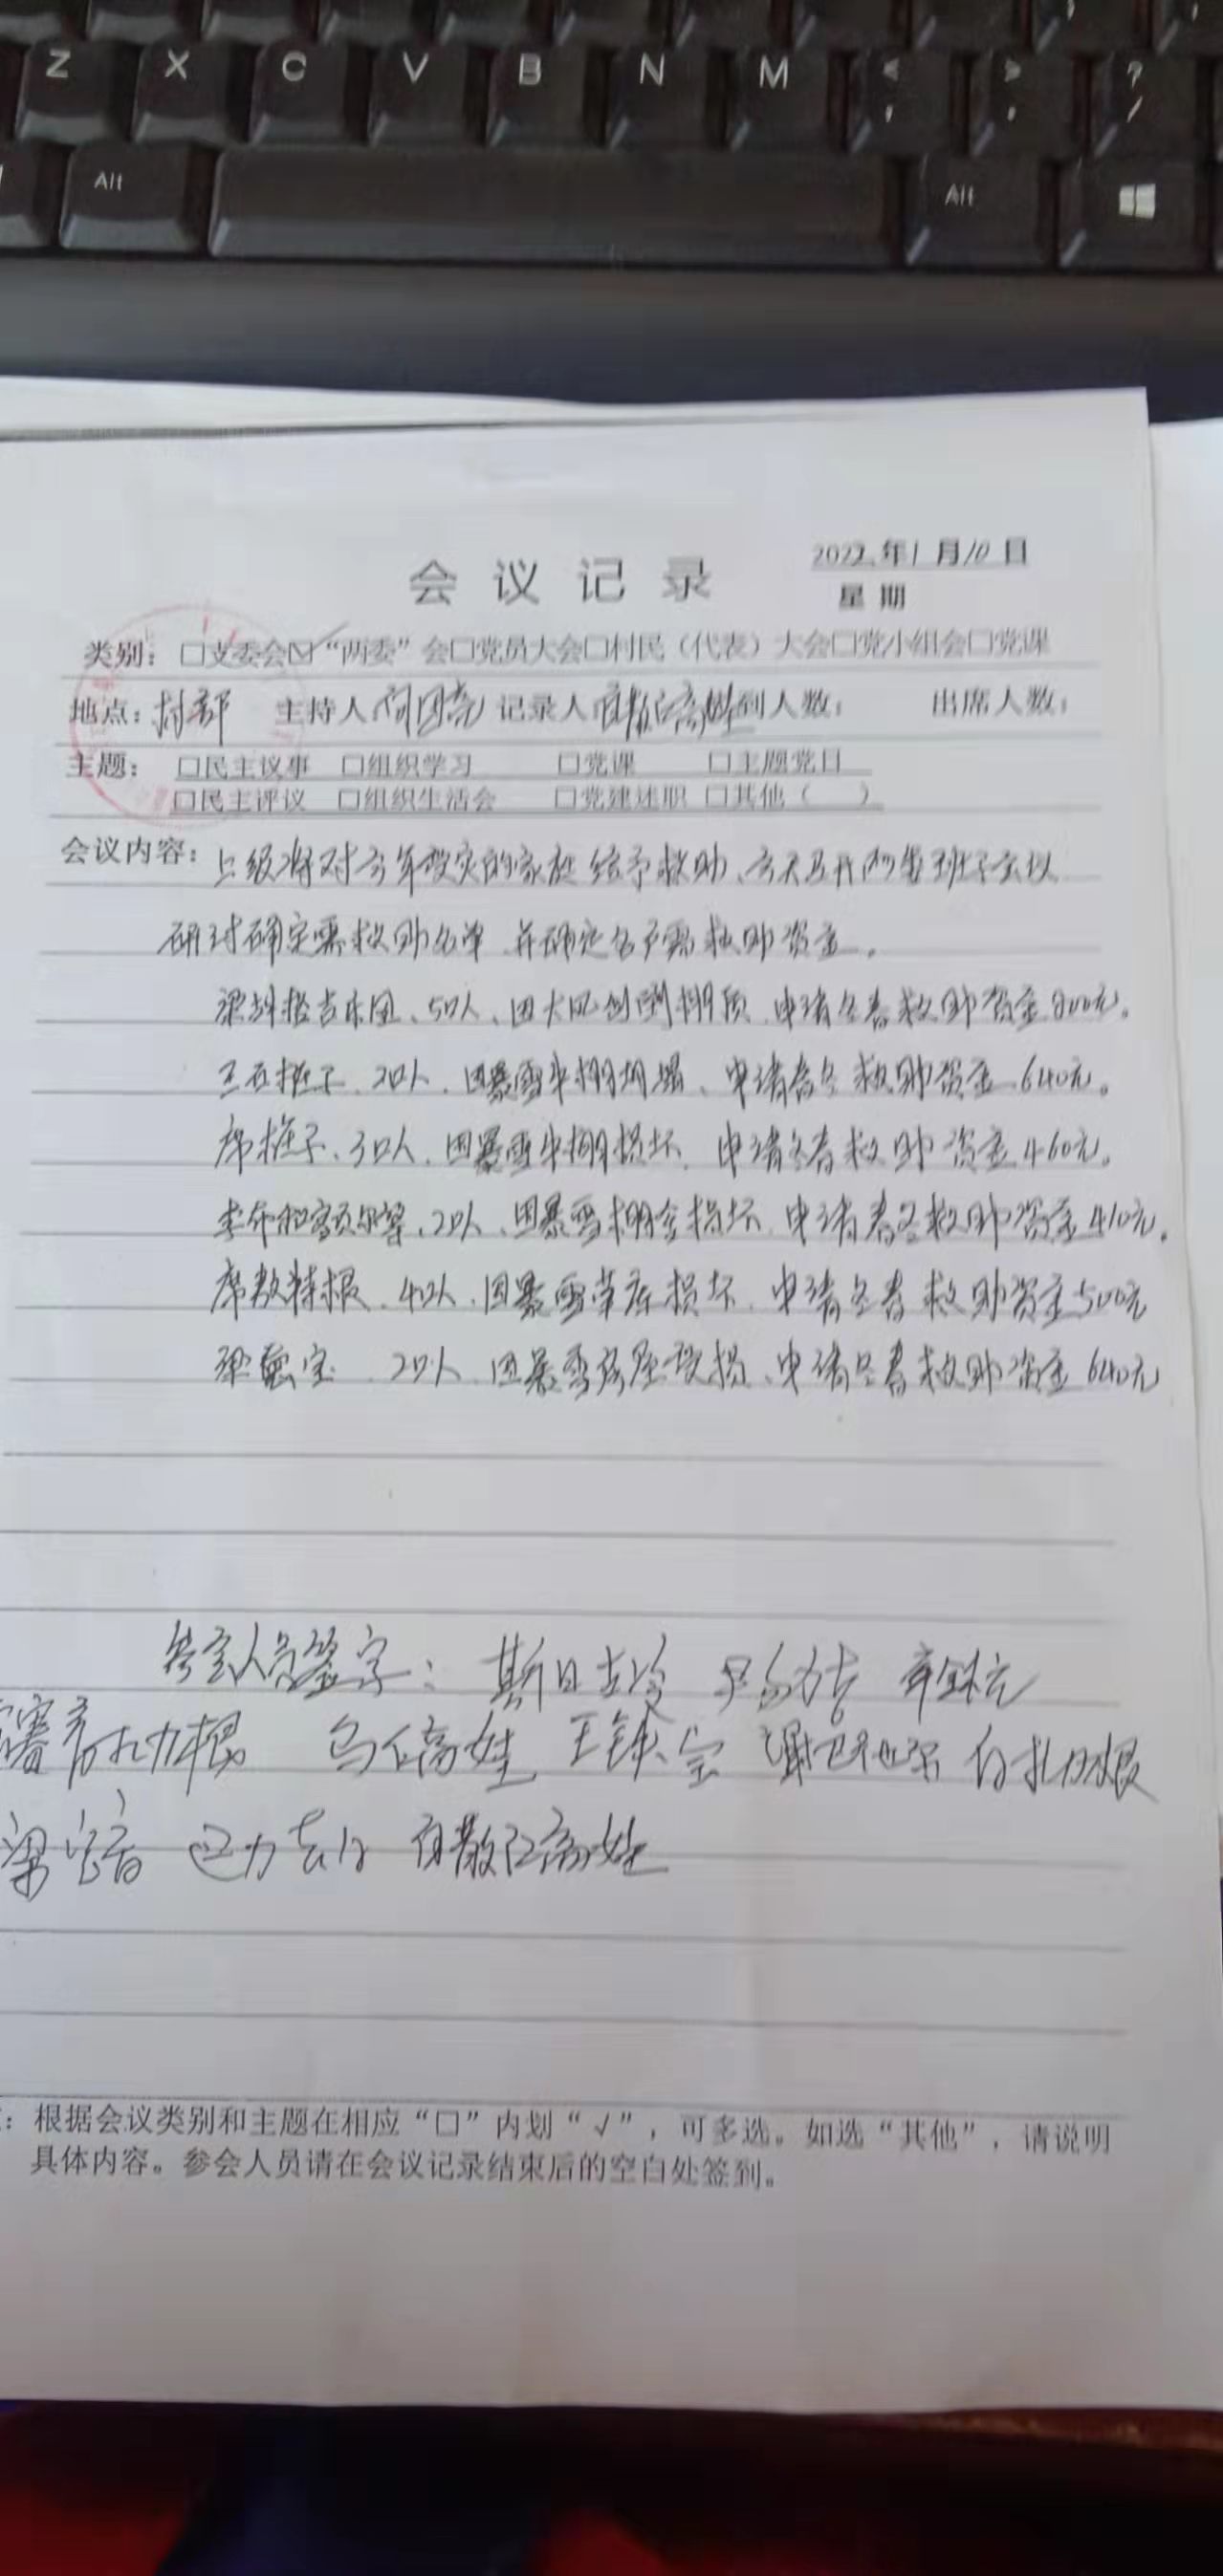 Z X C V B N M < , > . ? /
Alt Alt
会议记录
2022年1月10日
星期
类别：□支委会☑“两委”会□党员大会□村民（代表）大会□党小组会□党课
地点：村部 主持人 记录人 到人数： 出席人数：
主题：□民主议事 □组织学习 □党课 □主题党日
□民主评议 □组织生活会 □党建述职 □其他（ ）
会议内容：上级将对今年受灾的家庭给予救助、今天召开两委班子会议
研讨确定需救助名单 并确定各户需救助资金。
5口人、因大风刮倒棚顶 申请冬春救助资金800元。
2口人、因暴雪牛棚坍塌、申请春冬救助资金640元。
席柱子、3口人、因暴雪牛棚损坏、申请冬春救助资金460元。
2口人、因暴雪棚舍损坏、申请春冬救助资金410元。
席敖特根、4口人、因暴雪草库损坏、申请冬春救助资金500元
梁 宝 2口人、因暴雪房屋受损、申请冬春救助资金640元
参会人员签字：斯日古冷
扎力根 乌仁高娃 王铁宝 白扎力根
梁宝音 高娃
：根据会议类别和主题在相应“□”内划“√”，可多选。如选“其他”，请说明
具体内容。参会人员请在会议记录结束后的空白处签到。